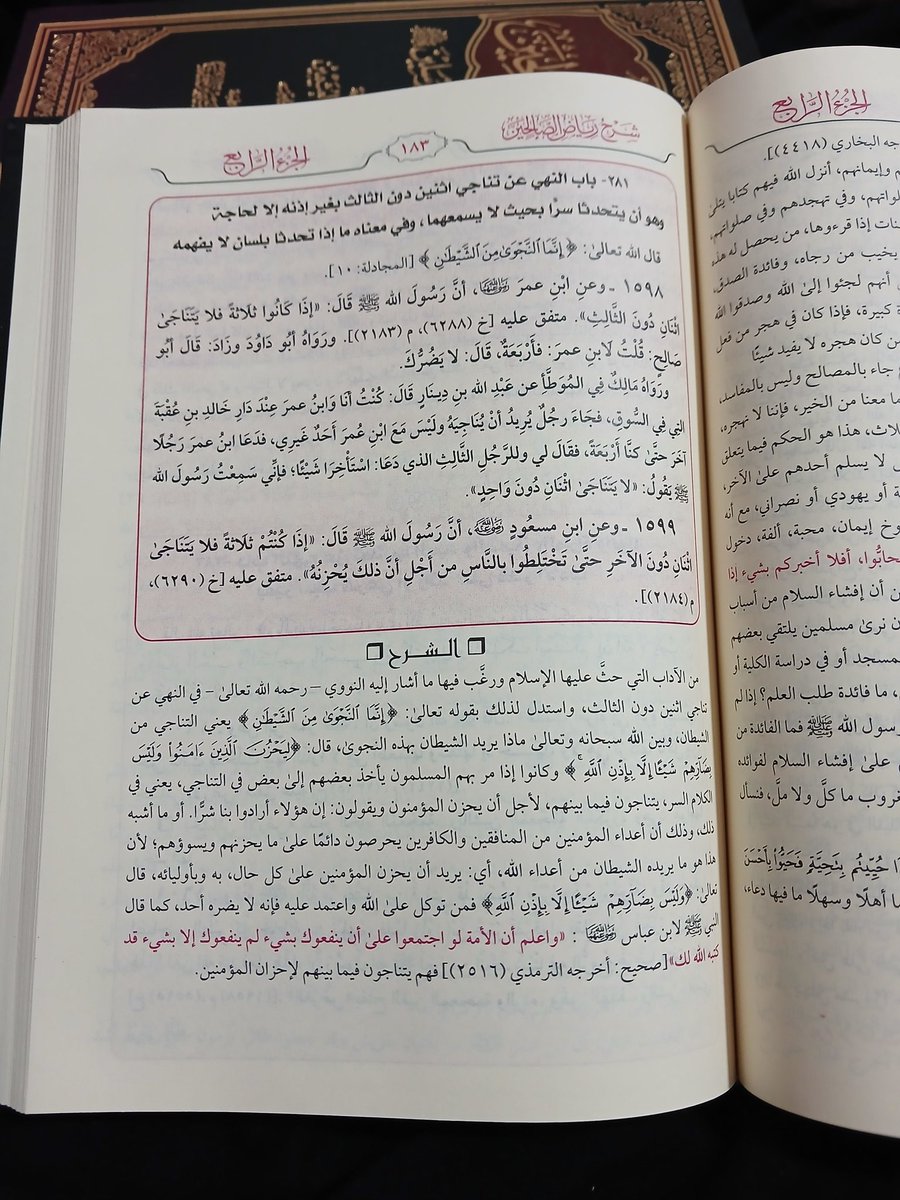 شرح رياض الصالحين
١٨٣
الجزء الرابع
٢٨١- باب النهي عن تناجي اثنين دون الثالث بغير إذنه إلا لحاجة
وهو أن يتحدثا سرًّا بحيث لا يسمعهما، وفي معناه ما إذا تحدثا بلسان لا يفهمه
قال الله تعالىٰ: ﴿إِنَّمَا ٱلنَّجۡوَىٰ مِنَ ٱلشَّيۡطَٰنِ﴾ [المجادلة: ١٠].
١٥٩٨ ـ وعنِ ابْنِ عمرَ رضي الله عنهما، أنَّ رَسُولَ الله ﷺ قَالَ: «إِذَا كَانُوا ثَلاثَةً فَلا يَتَنَاجَىٰ
اثْنَانِ دُونَ الثَّالِثِ». متفق عليه [خ (٦٢٨٨)، م (٢١٨٣)]. ورَوَاهُ أبُو دَاوُدَ وزَادَ: قَالَ أبُو
صَالِحٍ: قُلْتُ لابنِ عمرَ: فَأَرْبَعَةً، قَالَ: لا يَضُرُّكَ.
ورَوَاهُ مَالِكٌ فِي المُوَطَّأ عن عَبْدِ الله بنِ دِينَارٍ قَالَ: كُنْتُ أنَا وَابنُ عمرَ عِنْدَ دَارِ خَالِدِ بنِ عُقْبَةَ
التِي فِي السُّوقِ، فجَاءَ رجُلٌ يُرِيدُ أنْ يُنَاجِيَهُ وَلَيْسَ مَعَ ابْنِ عُمَرَ أحَدٌ غَيرِي، فدَعَا ابنُ عمرَ رَجُلًا
آخَرَ حتَّىٰ كنَّا أَرْبَعَةً، فقَالَ لي وللرَّجُلِ الثَّالِثِ الذي دَعَا: اسْتَأْخِرَا شَيْئًا؛ فإنِّي سَمِعْتُ رَسُولَ الله
ﷺ يَقُولُ: «لا يَتَنَاجَىٰ اثْنَانِ دُونَ وَاحِدٍ».
١٥٩٩ ـ وعنِ ابنِ مسعُودٍ رضي الله عنه، أنَّ رَسُولَ الله ﷺ قَالَ: «إِذَا كُنْتُمْ ثَلاثَةً فَلا يَتَنَاجَىٰ
اثْنَانِ دُونَ الآخَرِ حتَّىٰ تَخْتَلِطُوا بالنَّاسِ من أَجْلِ أنَّ ذلكَ يُحْزِنُهُ». متفق عليه [خ (٦٢٩٠)،
م (٢١٨٤)].
الشرح
من الآداب التي حثَّ عليها الإسلام ورغَّب فيها ما أشار إليه النووي – رحمه الله تعالىٰ – في النهي عن
تناجي اثنين دون الثالث، واستدل لذلك بقوله تعالىٰ: ﴿إِنَّمَا ٱلنَّجۡوَىٰ مِنَ ٱلشَّيۡطَٰنِ﴾ يعني التناجي من
الشيطان، وبين الله سبحانه وتعالىٰ ماذا يريد الشيطان بهذه النجوىٰ، قال: ﴿لِيَحۡزُنَ ٱلَّذِينَ ءَامَنُواْ وَلَيۡسَ
بِضَآرِّهِمۡ شَيۡـًٔا إِلَّا بِإِذۡنِ ٱللَّهِ﴾ وكانوا إذا مر بهم المسلمون يأخذ بعضهم إلىٰ بعض في التناجي، يعني في
الكلام السر، يتناجون فيما بينهم، لأجل أن يحزن المؤمنون ويقولون: إن هؤلاء أرادوا بنا شرًّا. أو ما أشبه
ذلك، وذلك أن أعداء المؤمنين من المنافقين والكافرين يحرصون دائمًا علىٰ ما يحزنهم ويسوؤهم؛ لأن
هذا هو ما يريده الشيطان من أعداء الله، أي: يريد أن يحزن المؤمنين علىٰ كل حال، به وبأوليائه، قال
تعالىٰ: ﴿وَلَيۡسَ بِضَآرِّهِمۡ شَيۡـًٔا إِلَّا بِإِذۡنِ ٱللَّهِ﴾ فمن توكل علىٰ الله واعتمد عليه فإنه لا يضره أحد، كما قال
النبي ﷺ لابن عباس رضي الله عنهما: «واعلم أن الأمة لو اجتمعوا علىٰ أن ينفعوك بشيء لم ينفعوك إلا بشيء قد
كتبه الله لك» [صحيح: أخرجه الترمذي (٢٥١٦)] فهم يتناجون فيما بينهم لإحزان المؤمنين.
الجزء الرابع
جه البخاري (٤٤١٨)].
م وإيمانهم، أنزل الله فيهم كتابا يتلىٰ
لواتهم، وفي تهجدهم وفي صلواتهم،
نات إذا قرءوها، من يحصل له هذه
يخيب من رجاه، وفائدة الصدق،
أنهم لجئوا إلىٰ الله وصدقوا الله
ة كبيرة، فإذا كان في هجر من فعل
ن كان هجره لا يفيد شيئًا
جاء بالمصالح وليس بالمفاسد،
ما معنا من الخير، فإننا لا نهجره،
لاث، هذا هو الحكم فيما يتعلق
لا يسلم أحدهم علىٰ الآخر،
ة أو يهودي أو نصراني، مع أنه
وخ إيمان، محبة، ألفة، دخول
حابُّوا، أفلا أخبركم بشيء إذا
ن أن إفشاء السلام من أسباب
ن نرىٰ مسلمين يلتقي بعضهم
مسجد أو في دراسة الكلية أو
، ما فائدة طلب العلم؟ إذا لم
رسول الله ﷺ فما الفائدة من
علىٰ إفشاء السلام لفوائده
غروب ما كلَّ ولا ملَّ، فنسأل
ا حُيِّيتُم بِتَحِيَّةٖ فَحَيُّواْ بِأَحۡسَنَ
ا أهلًا وسهلًا ما فيها دعاء،